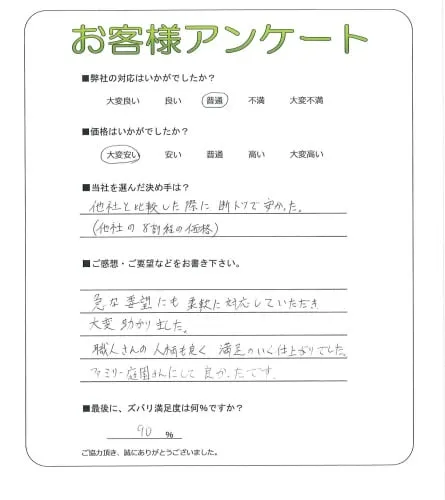 お客様アンケート
■弊社の対応はいかがでしたか?
大変良い 良い 普通 不満 大変不満
■価格はいかがでしたか?
大変安い 安い 普通 高い 大変高い
■当社を選んだ決め手は?
他社と比較した際に断トツで安かった。
(他社の8割程の価格)
■ご感想・ご要望などをお書き下さい。
急な要望にも柔軟に対応していただき
大変助かりました。
職人さんの人柄も良く満足のいく仕上がりでした。
ファミリー庭園さんにして良かったです。
■最後に、ズバリ満足度は何%ですか?
90 %
ご協力頂き、誠にありがとうございました。